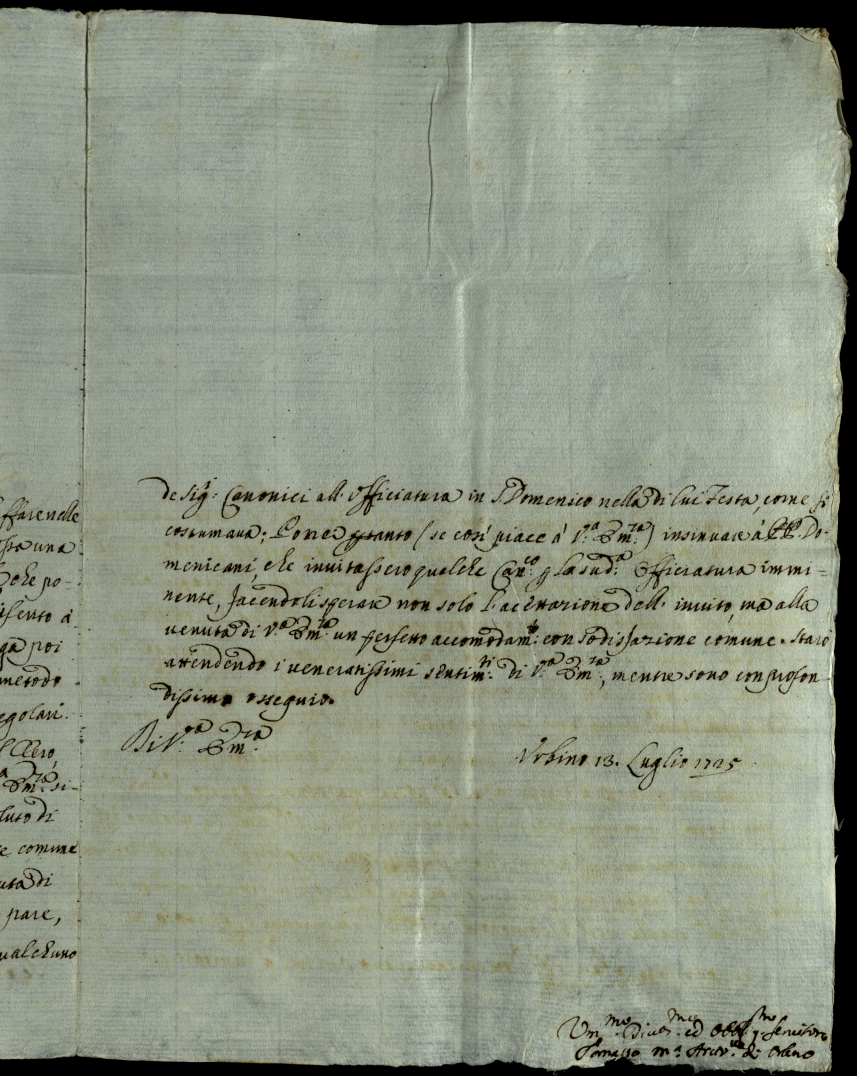 ffare nelle
una
che po-
à
poi
metodo
egolari
l Clero,
Em.za si-
luto di
e comune
uta di
pare,
ualcheuno
de Sig.ri Canonici all' Officiatura in S Domenico nella di lui Festa, come si
costumava; Potrei p tanto (se così piace à V.a Em.za) insinuare à PP. Do-
menicani, che invitassero qualche Can.co p la sud.a Officiatura immi-
nente, facendoli sperare non solo l'accettazione dell' invito, ma alla
venuta di V.a Em.za un perfetto accomodam.to con sodisfazione comune. Starò
attendendo i veneratissimi sentim.ti di V.a Em.za, mentre sono con profon-
dissimo ossequio.
Di V.a Em.za
Urbino 13. Luglio 1725
Um.mo Divot.mo ed Obb.mo Servitore
Tomasso M.a Arciv.o di Urbino